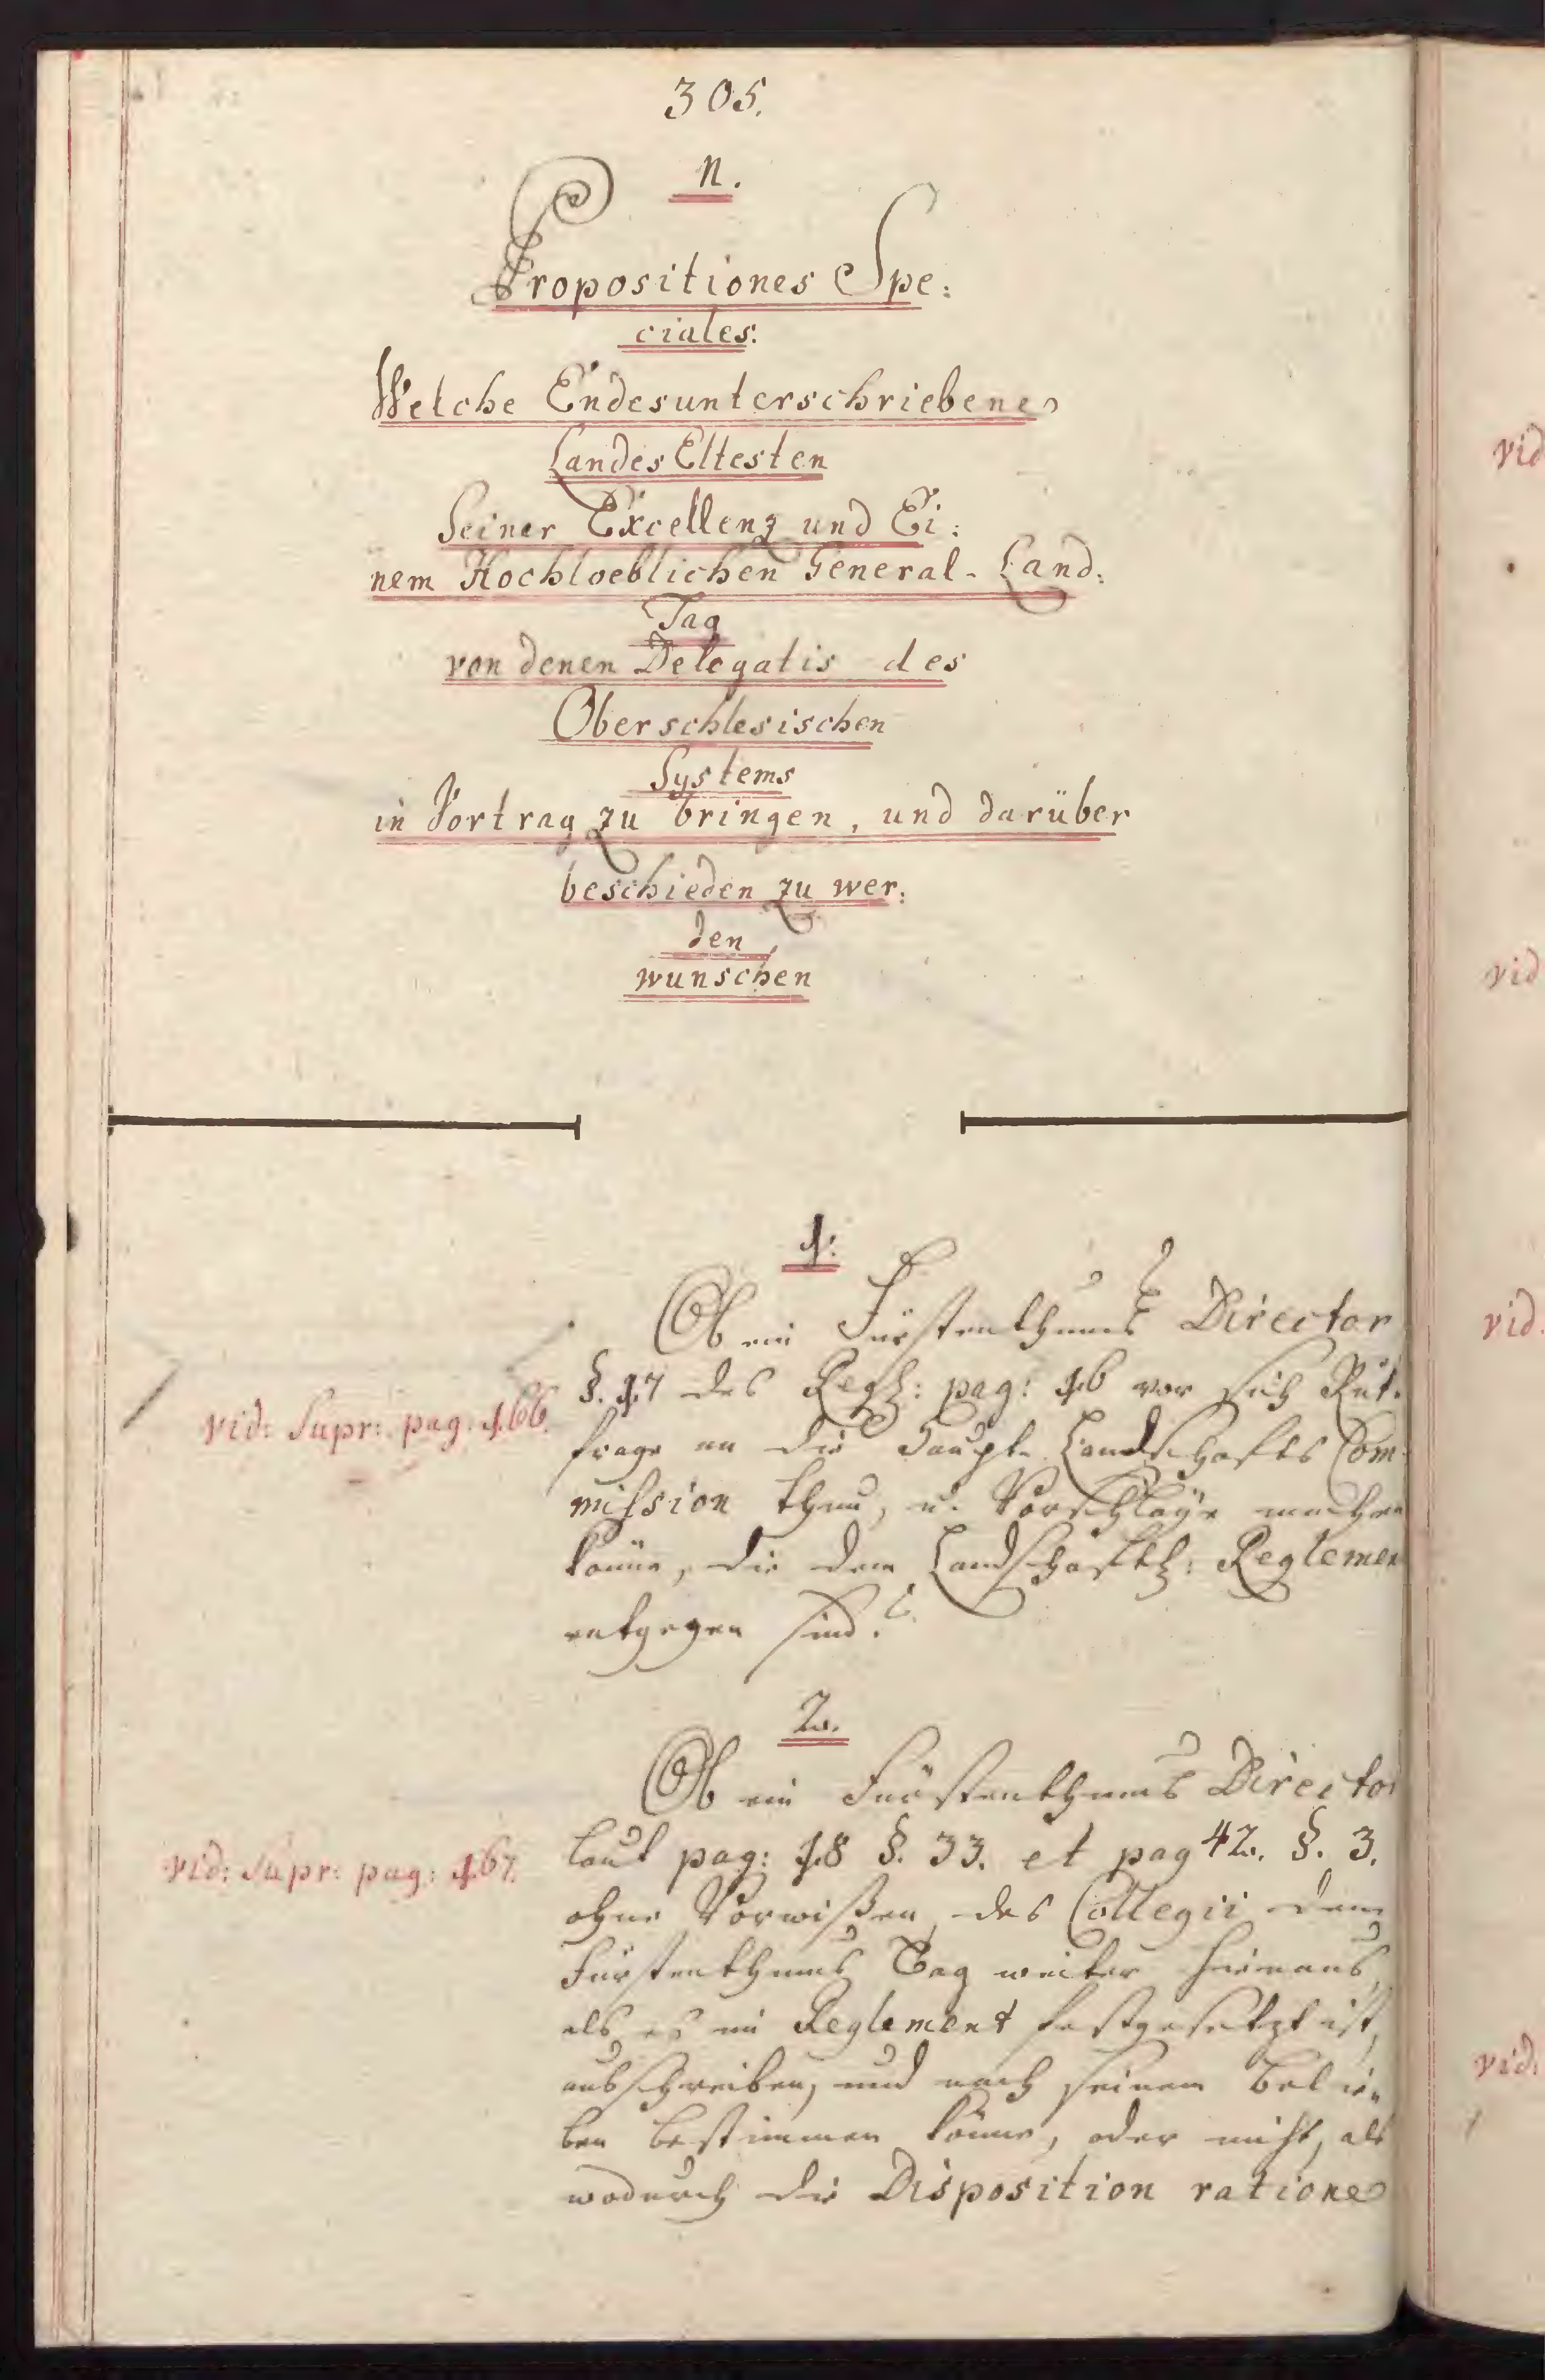 305.
N.
Propositiones Spe:
ciales:
Welche Endesunterschriebene
Landes Eltesten
Seiner Excellenz und Ei:
nem Hochloeblichen General-Land:
Tag
von denen Delegatis des
Oberschlesischen
Systems
in Vortrag zu bringen, und darüber
beschieden zu wer:
den,
wunschen
1.
Ob ein Fürstenthums Director
§. 17 des Regl: pag: 16 vor sich Rük-
vid: Supr: pag: 166.
frage an die Haupt-Landschafts Com-
mission thun, u. Vorschläge machen
könne, die dem Landschaftl: Reglement
entgegen sind?
2.
Ob ein Fürstenthums Director
vid: Supr: pag: 167.
laut pag: 18 §. 33. et pag 42. §. 3.
ohne Vorwißen des Collegii den
Fürstenthums Tag weiter hinaus,
als es im Reglement festgesetzt ist,
ausschreiben, und nach seinem Belie-
ben bestimmen könne, oder nicht, als
wodurch die Disposition ratione
vid
vid
vid.
vid: